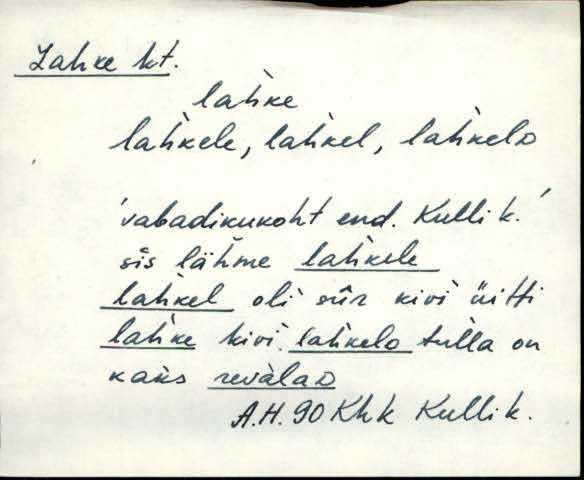 Lahke kt.
lah̀ke
lah̀kele, lah̀kel, lah̀kelᴅ
'vabadikukoht end. Kulli k.'
sīs lähme lah̀kele
lah̀kel oli sūr kivi üitti
lah̀ke kivi. lah̀kelᴅ tùlla on
kaks revàlaᴅ
A.H. 90 Khk Kulli k.